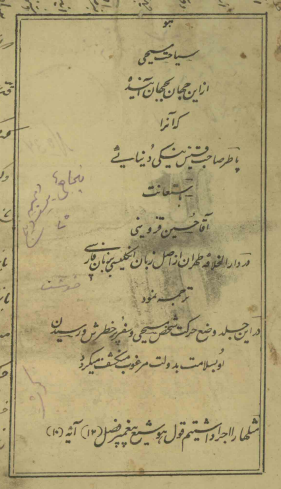 هو
سیاحت مسیحی
از این جهان بجهان آینده
که آنرا
پاطر صاحب قسیس ینیکی دنیائی
باستعانت
آقا حسین قزوینی
در دار الخلافه طهران از اصل زبان انگلیسی بزبان فارسی
ترجمه نمود
در این جلد وضع حرکت شخص مسیحی و سفر پر خطرش و رسیدن
او بسلامت بدولت مرغوب منکشف میگردد
مثلها را اجرا داشتیم قول هوشیع پیغمبر فصل (۱۲) آیه (۱۰)